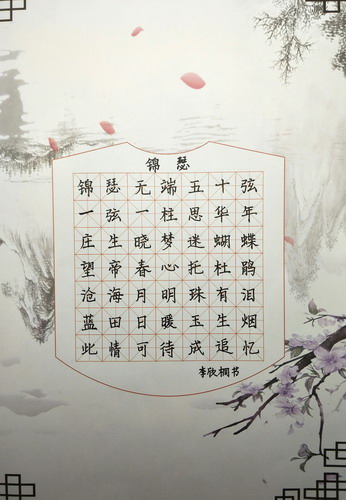 锦瑟
锦瑟无端五十弦
一弦一柱思华年
庄生晓梦迷蝴蝶
望帝春心托杜鹃
沧海月明珠有泪
蓝田日暖玉生烟
此情可待成追忆
李欣桐书